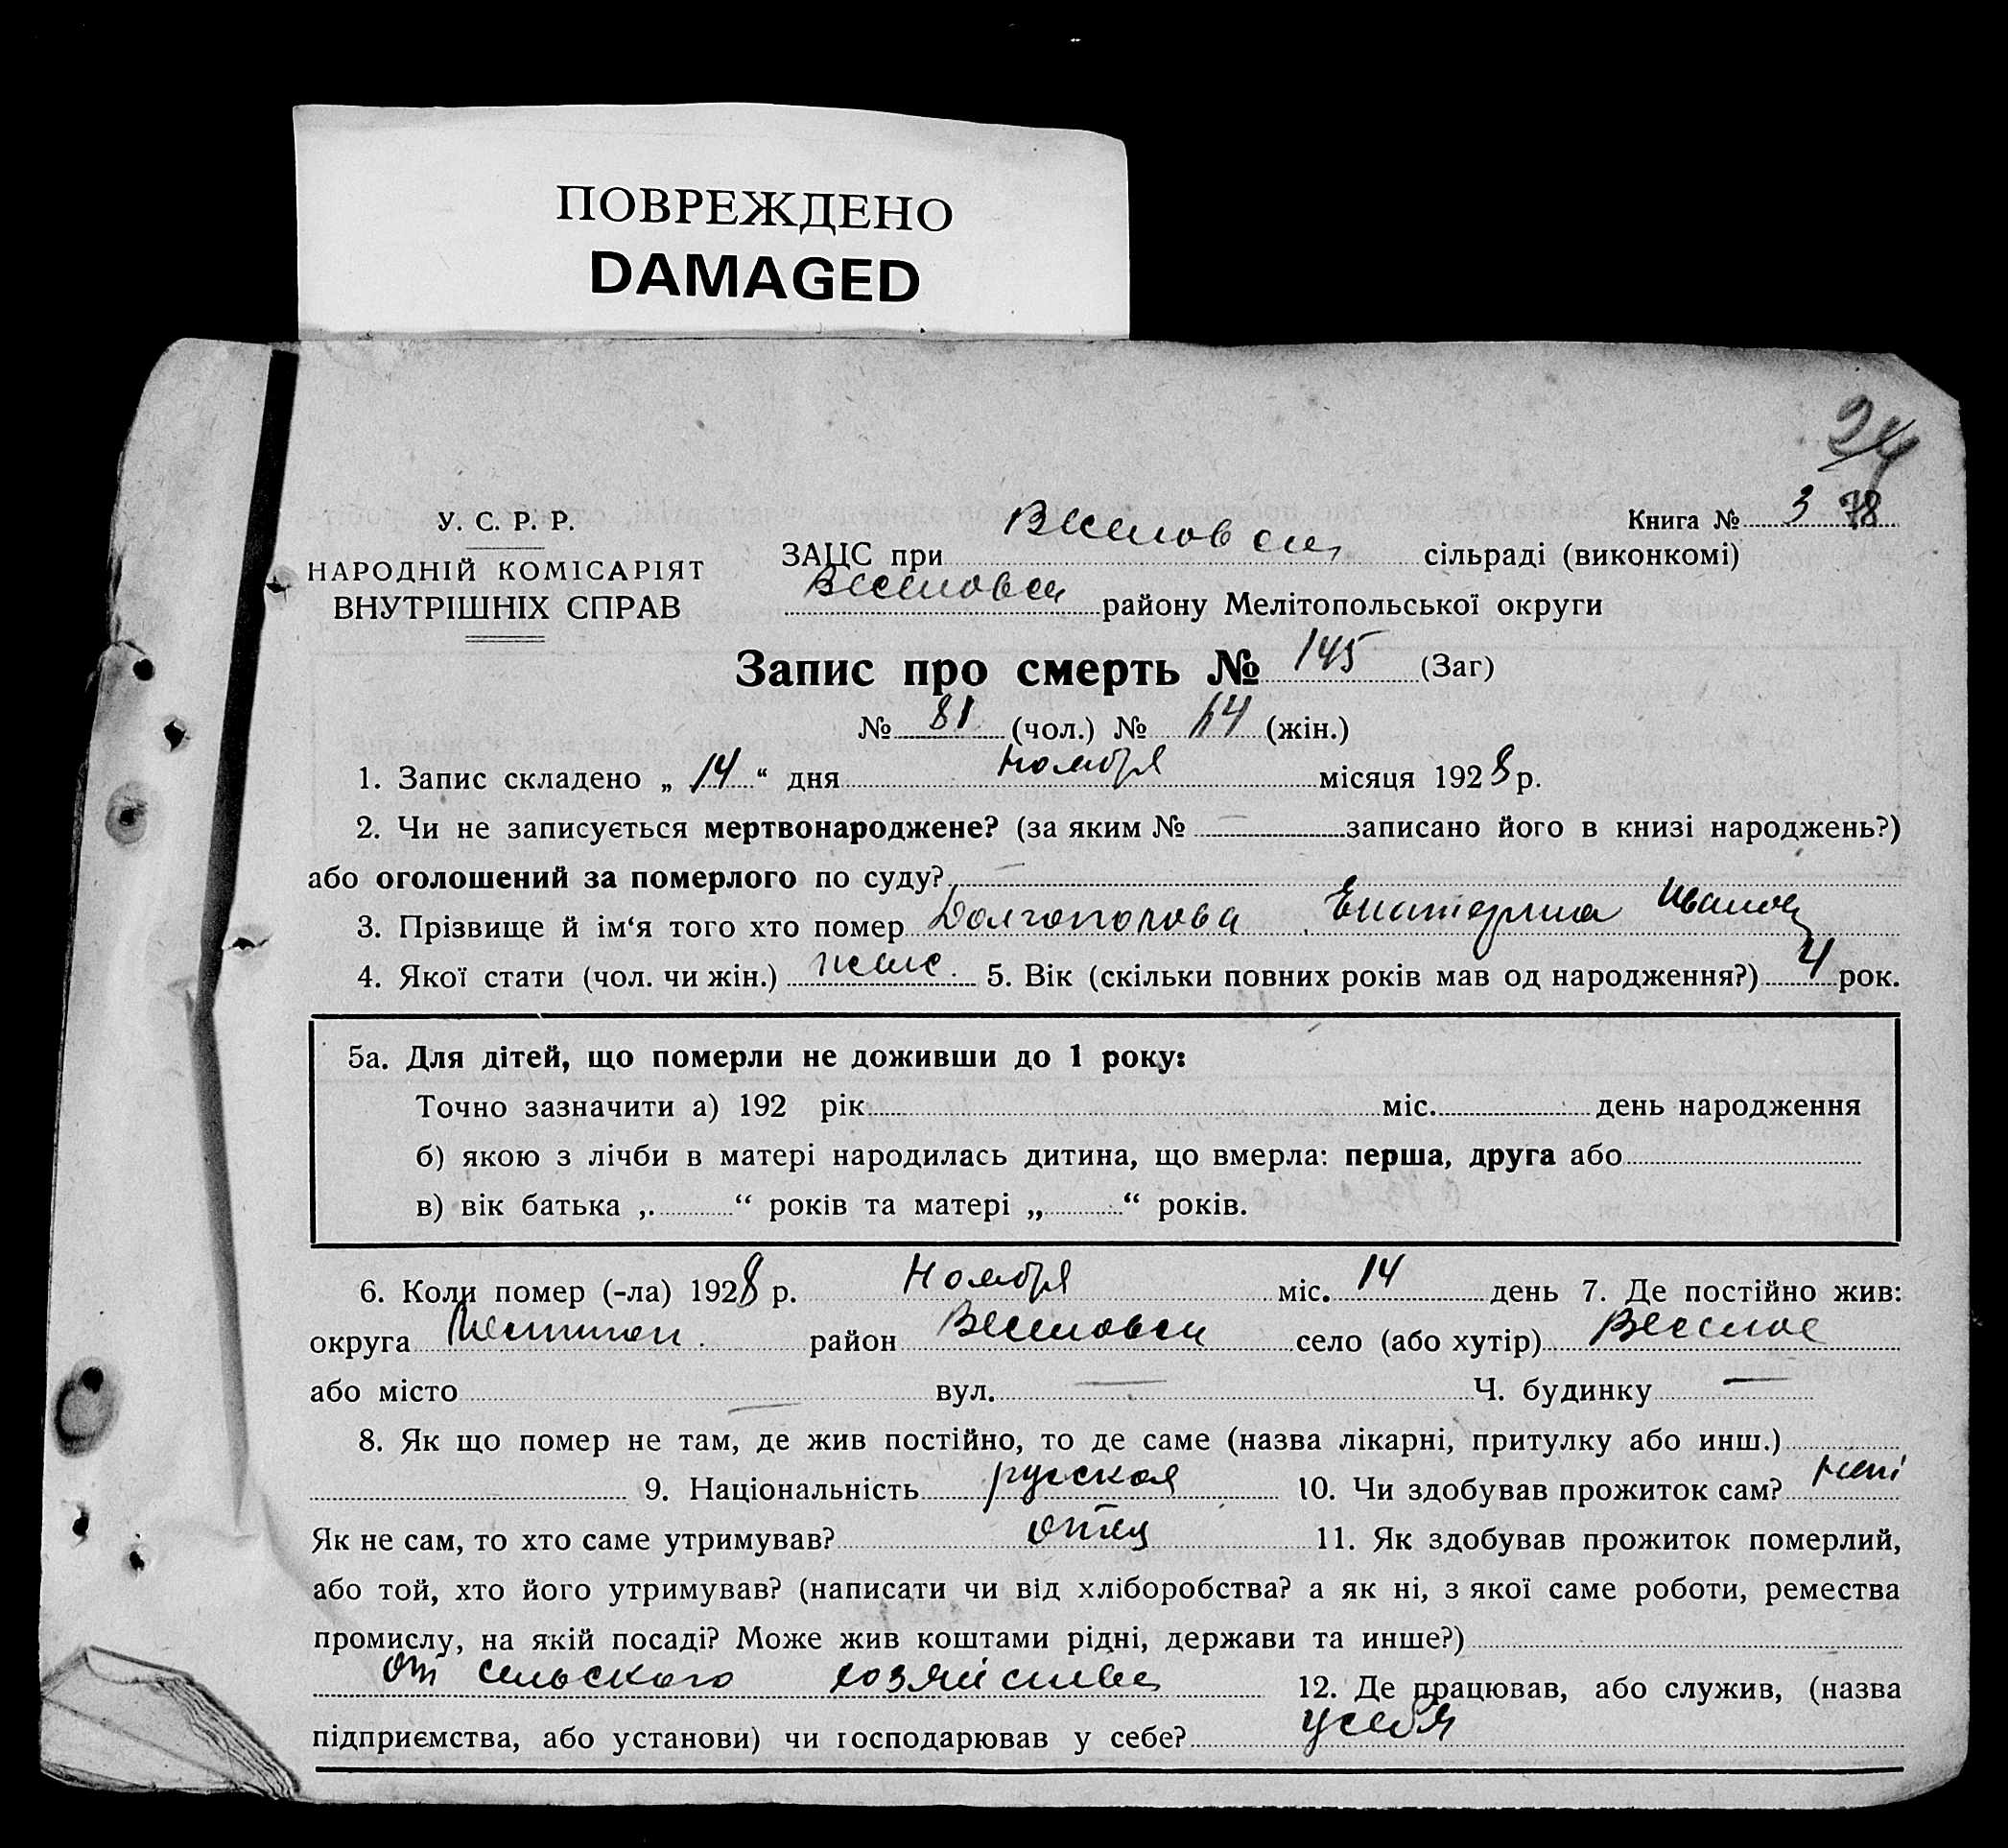 ПОВРЕЖДЕНО
DAMAGED
24
Книга № 3 78
У. С. Р. Р.
НАРОДНІЙ КОМІСАРІЯТ
ВНУТРІШНІХ СПРАВ
ЗАЦС при Веселовск сільраді (виконкомі)
Веселовск району Мелітопольської округи
Запис про смерть № 145 (Заг)
№ 81 (чол.) № 64 (жін.)
1. Запис складено „ 14 “ дня Ноября місяця 1928 р.
2. Чи не записується мертвонароджене? (за яким № — записано його в книзі народжень?)
або оголошений за померлого по суду? —
3. Прізвище й ім‘я того хто помер Долгополова Екатерина Иванов
4. Якої стати (чол. чи жін.) женс. 5. Вік (скільки повних років мав од народження?) 4 рок.
5а. Для дітей, що померли не доживши до 1 року:
Точно зазначити а) 192 рік міс. день народження
б) якою з лічби в матері народилась дитина, що вмерла: перша, друга або
в) вік батька „ “ років та матері „ “ років.
6. Коли помер (-ла) 1928 р. Ноября міс. 14 день 7. Де постійно жив:
округа Мелитоп. район Веселовск село (або хутір) Веселое
або місто — вул. — Ч. будинку —
8. Як що помер не там, де жив постійно, то де саме (назва лікарні, притулку або инш.)
9. Національність русская 10. Чи здобував прожиток сам? нет
Як не сам, то хто саме утримував? отец 11. Як здобував прожиток померлий,
або той, хто його утримував? (написати чи від хліборобства? а як ні, з якої саме роботи, ремества
промислу, на якій посаді? Може жив коштами рідні, держави та инше?)
от сельского хозяйства 12. Де працював, або служив, (назва
підприємства, або установи) чи господарював у себе? у себя